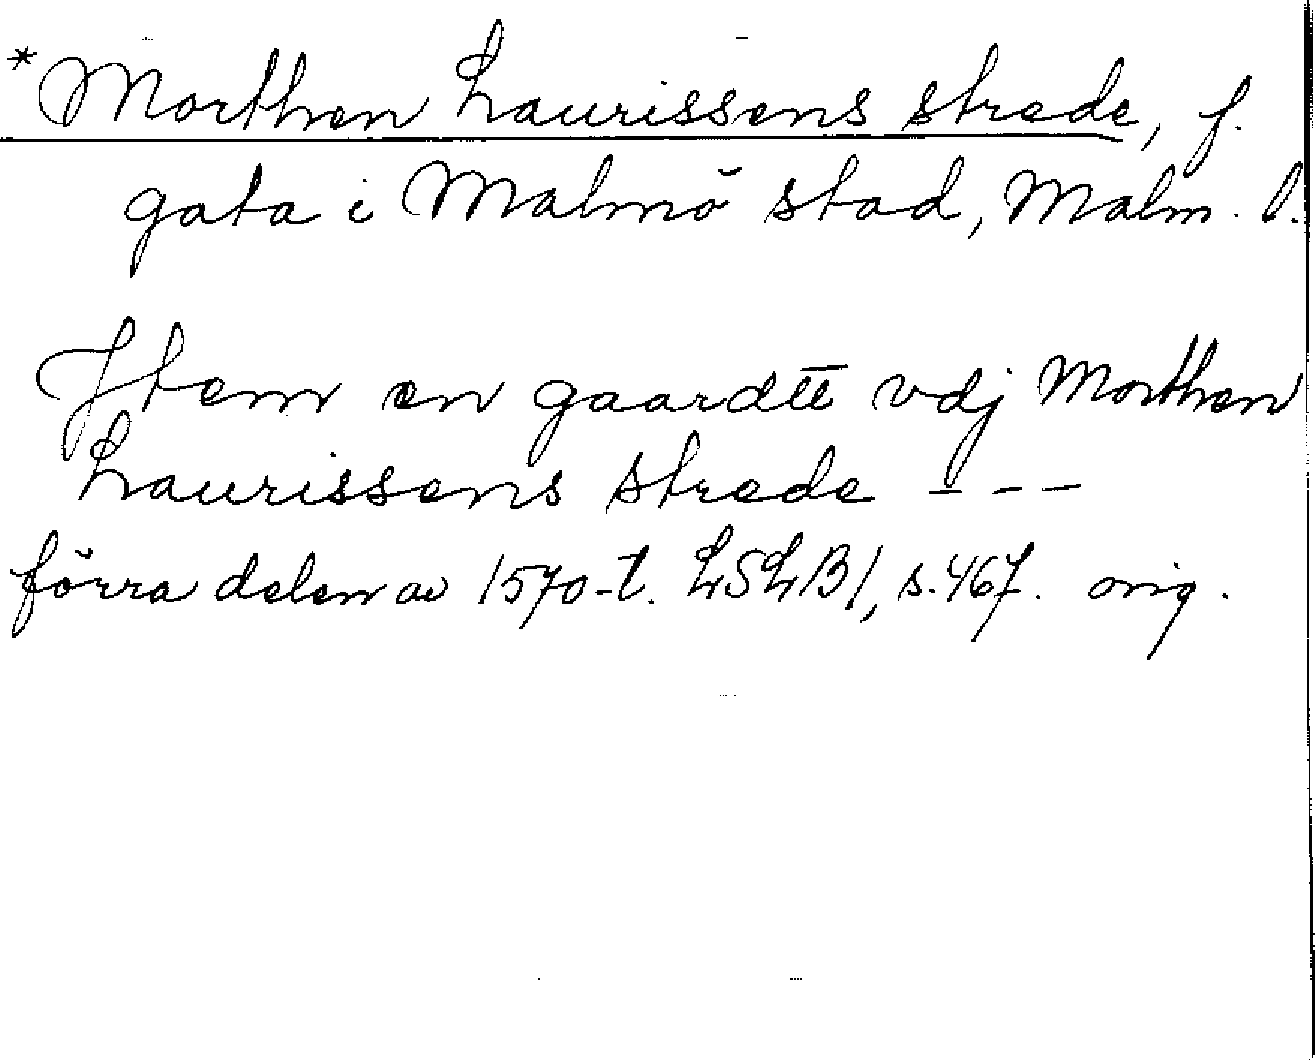 *Morthen Laurissens strede, f.
gata i Malmö stad, Malm. l.
Jtem en gaardtt vdj Morthen
Laurissens strede ---
förra delen av 1570-t. LSLB1, s. 467. orig.